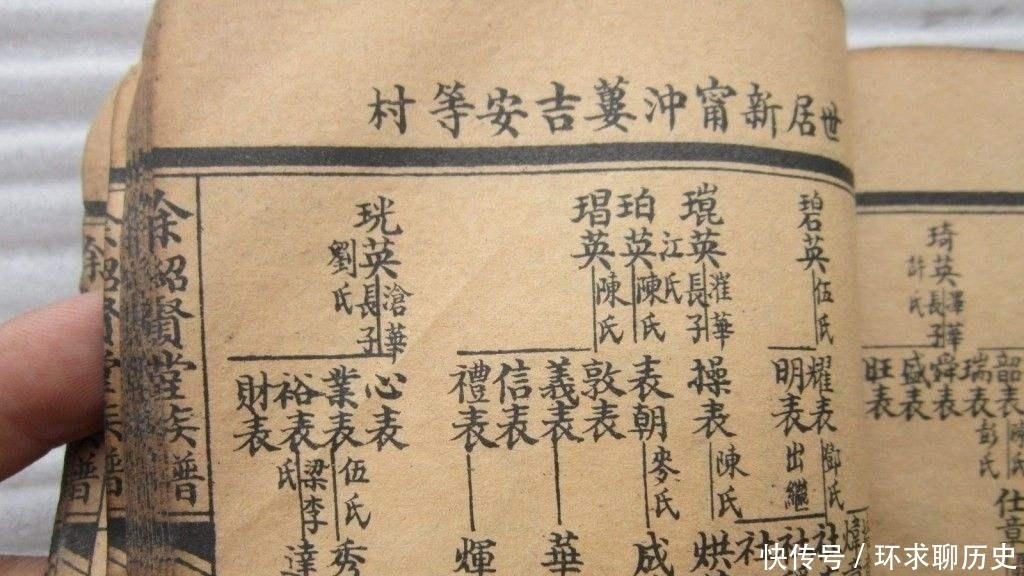 世居新甯沖蔞吉安等村
琦英
許氏
長子
韶表
瑞表
彭氏
舜表
盛表
旺表
仕章
碧英
伍氏
耀表
鄧氏
明表
出繼
社
社
華長子
英
江氏
操表
陳氏
烘
珀英
陳氏
表朝
麥氏
成
琩英
陳氏
敦表
義表
華
信表
禮表
輝
珖英
滄華長子
劉氏
心表
業表
伍氏
秀
裕表
梁李氏
達
財表
余紹賢堂族譜
快传号/环求聊历史